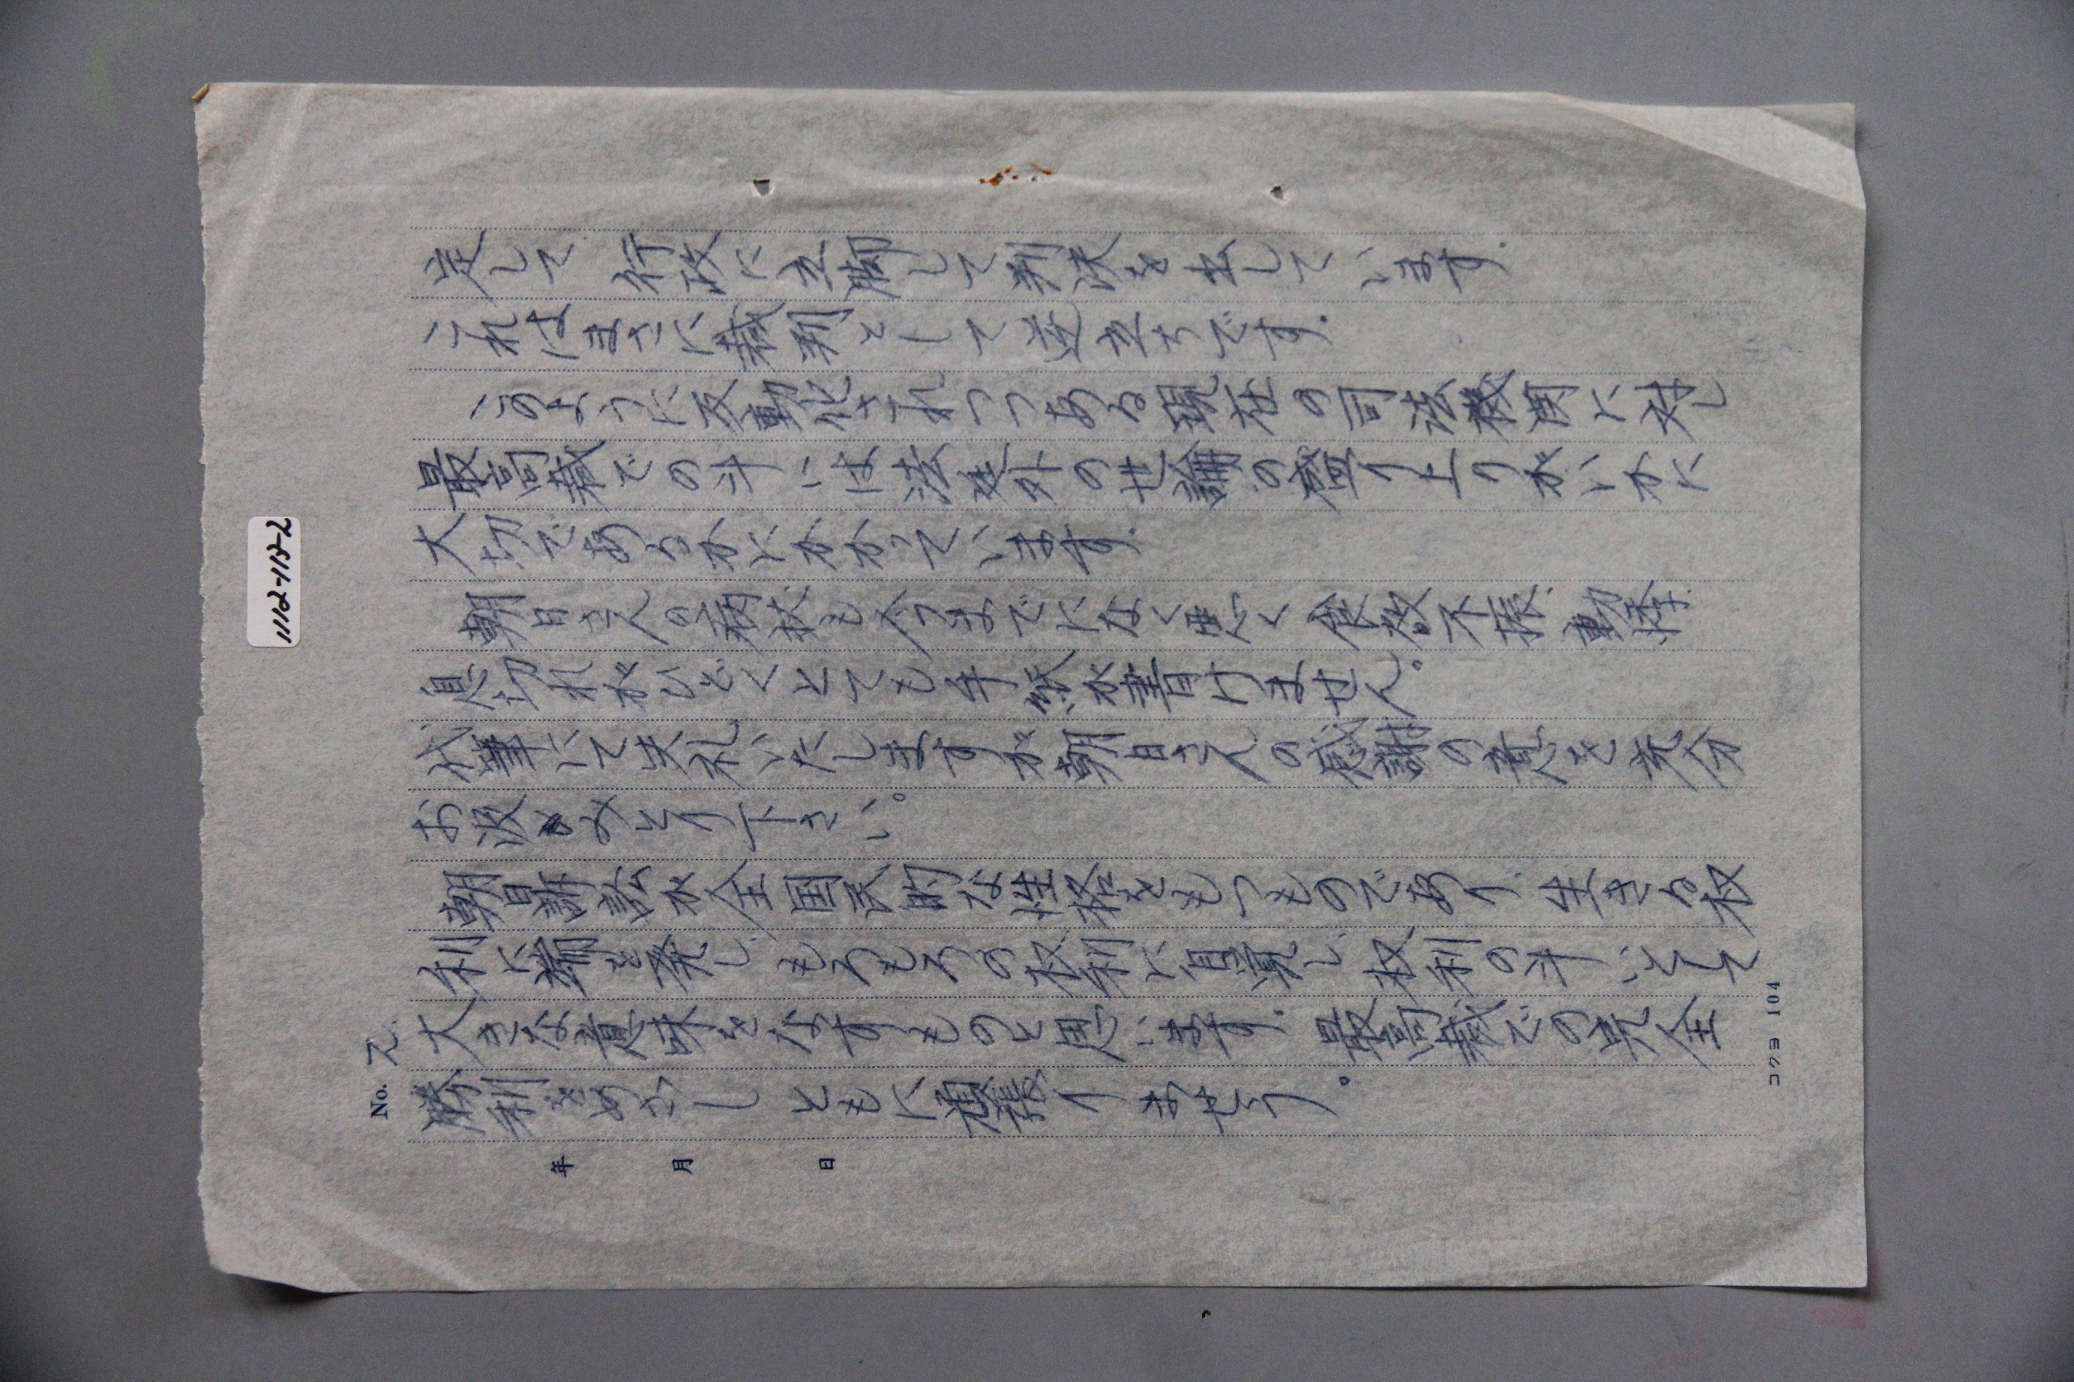 No. 2.
定して 行政に立脚して判決を出しています.
これはまさに裁判として逆立ちです.
このように反動化されつつある現在の司法機関に対し
最高裁での斗いは法廷外の世論の盛り上りがいかに
大切であるかにかかっています.
朝日さんの病状も今までになく悪く食欲不振、動悸、
息切れがひどくとても手紙が書けません。
代筆にて失礼いたしますが朝日さんの感謝の意を充分
お汲みとり下さい。
朝日訴訟が全国民的な性格をもつものであり、生きる权
利に端を発し、もろもろの权利に自覚し、权利の斗いとして
大きな意味をなすものと思います. 最高裁での完全
勝利をめざし ともに頑張りませう。
年 月 日
コクヨ 104
1112-113-2